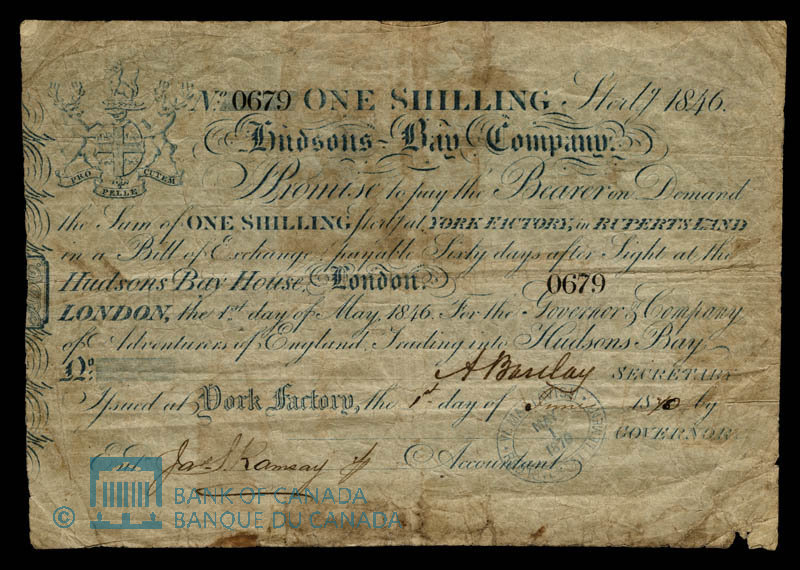 No. 0679 ONE SHILLING Sterlg 1846.
Hudsons-Bay Company.
PRO PELLE CUTEM
Promise to pay the Bearer on Demand
the Sum of ONE SHILLING Sterlg at YORK FACTORY, in RUPERTS LAND
in a Bill of Exchange payable Sixty days after Sight at the
Hudsons Bay House, London. 0679
LONDON, the 1st day of May, 1846. For the Governor & Company
of Adventurers of England, Trading into Hudsons Bay.
No. A Barclay SECRETARY
Issued at York Factory, the 1st day of June 1870 by
GOVERNOR
Ent. Jas. S. Ramsay Accountant
© BANK OF CANADA
BANQUE DU CANADA